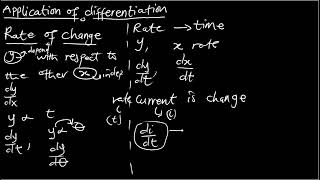 Application of differentiation
Rate of change
y depend with respect to
the other x indep
dy
dx
y & t
dy
dt,
y &
dy
dθ
Rate → time
y, x rate
dy
dt,
dx
dt
rate current is change
(t) (i)
di
dt